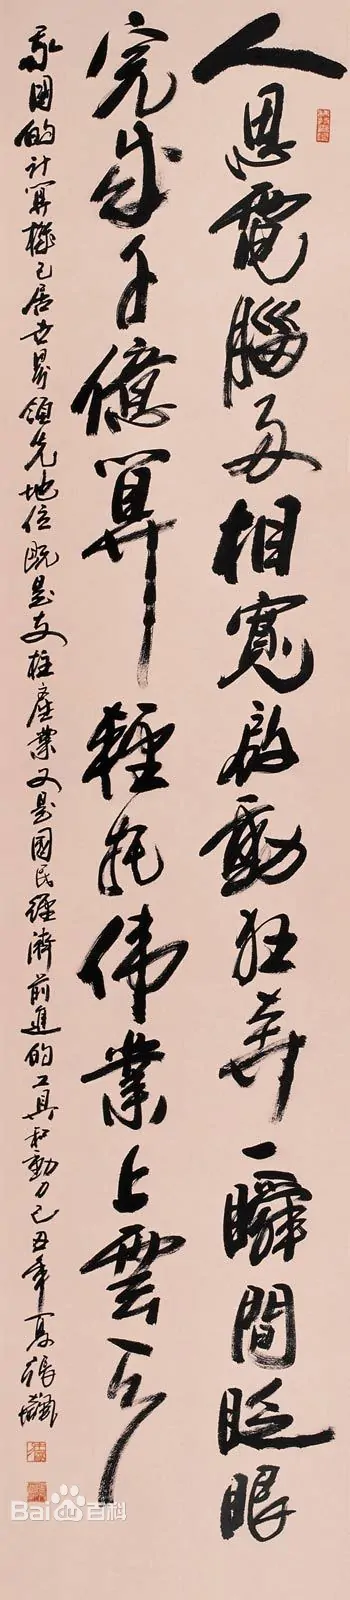 人思電腦互相寬啟動狂奔一瞬間眨眼
完成千億算輕托伟業上雲天
我国的计算機已居世界領先地位既是支柱產業又是國民經濟前進的工具和動力己丑年夏張飆
Bai百科